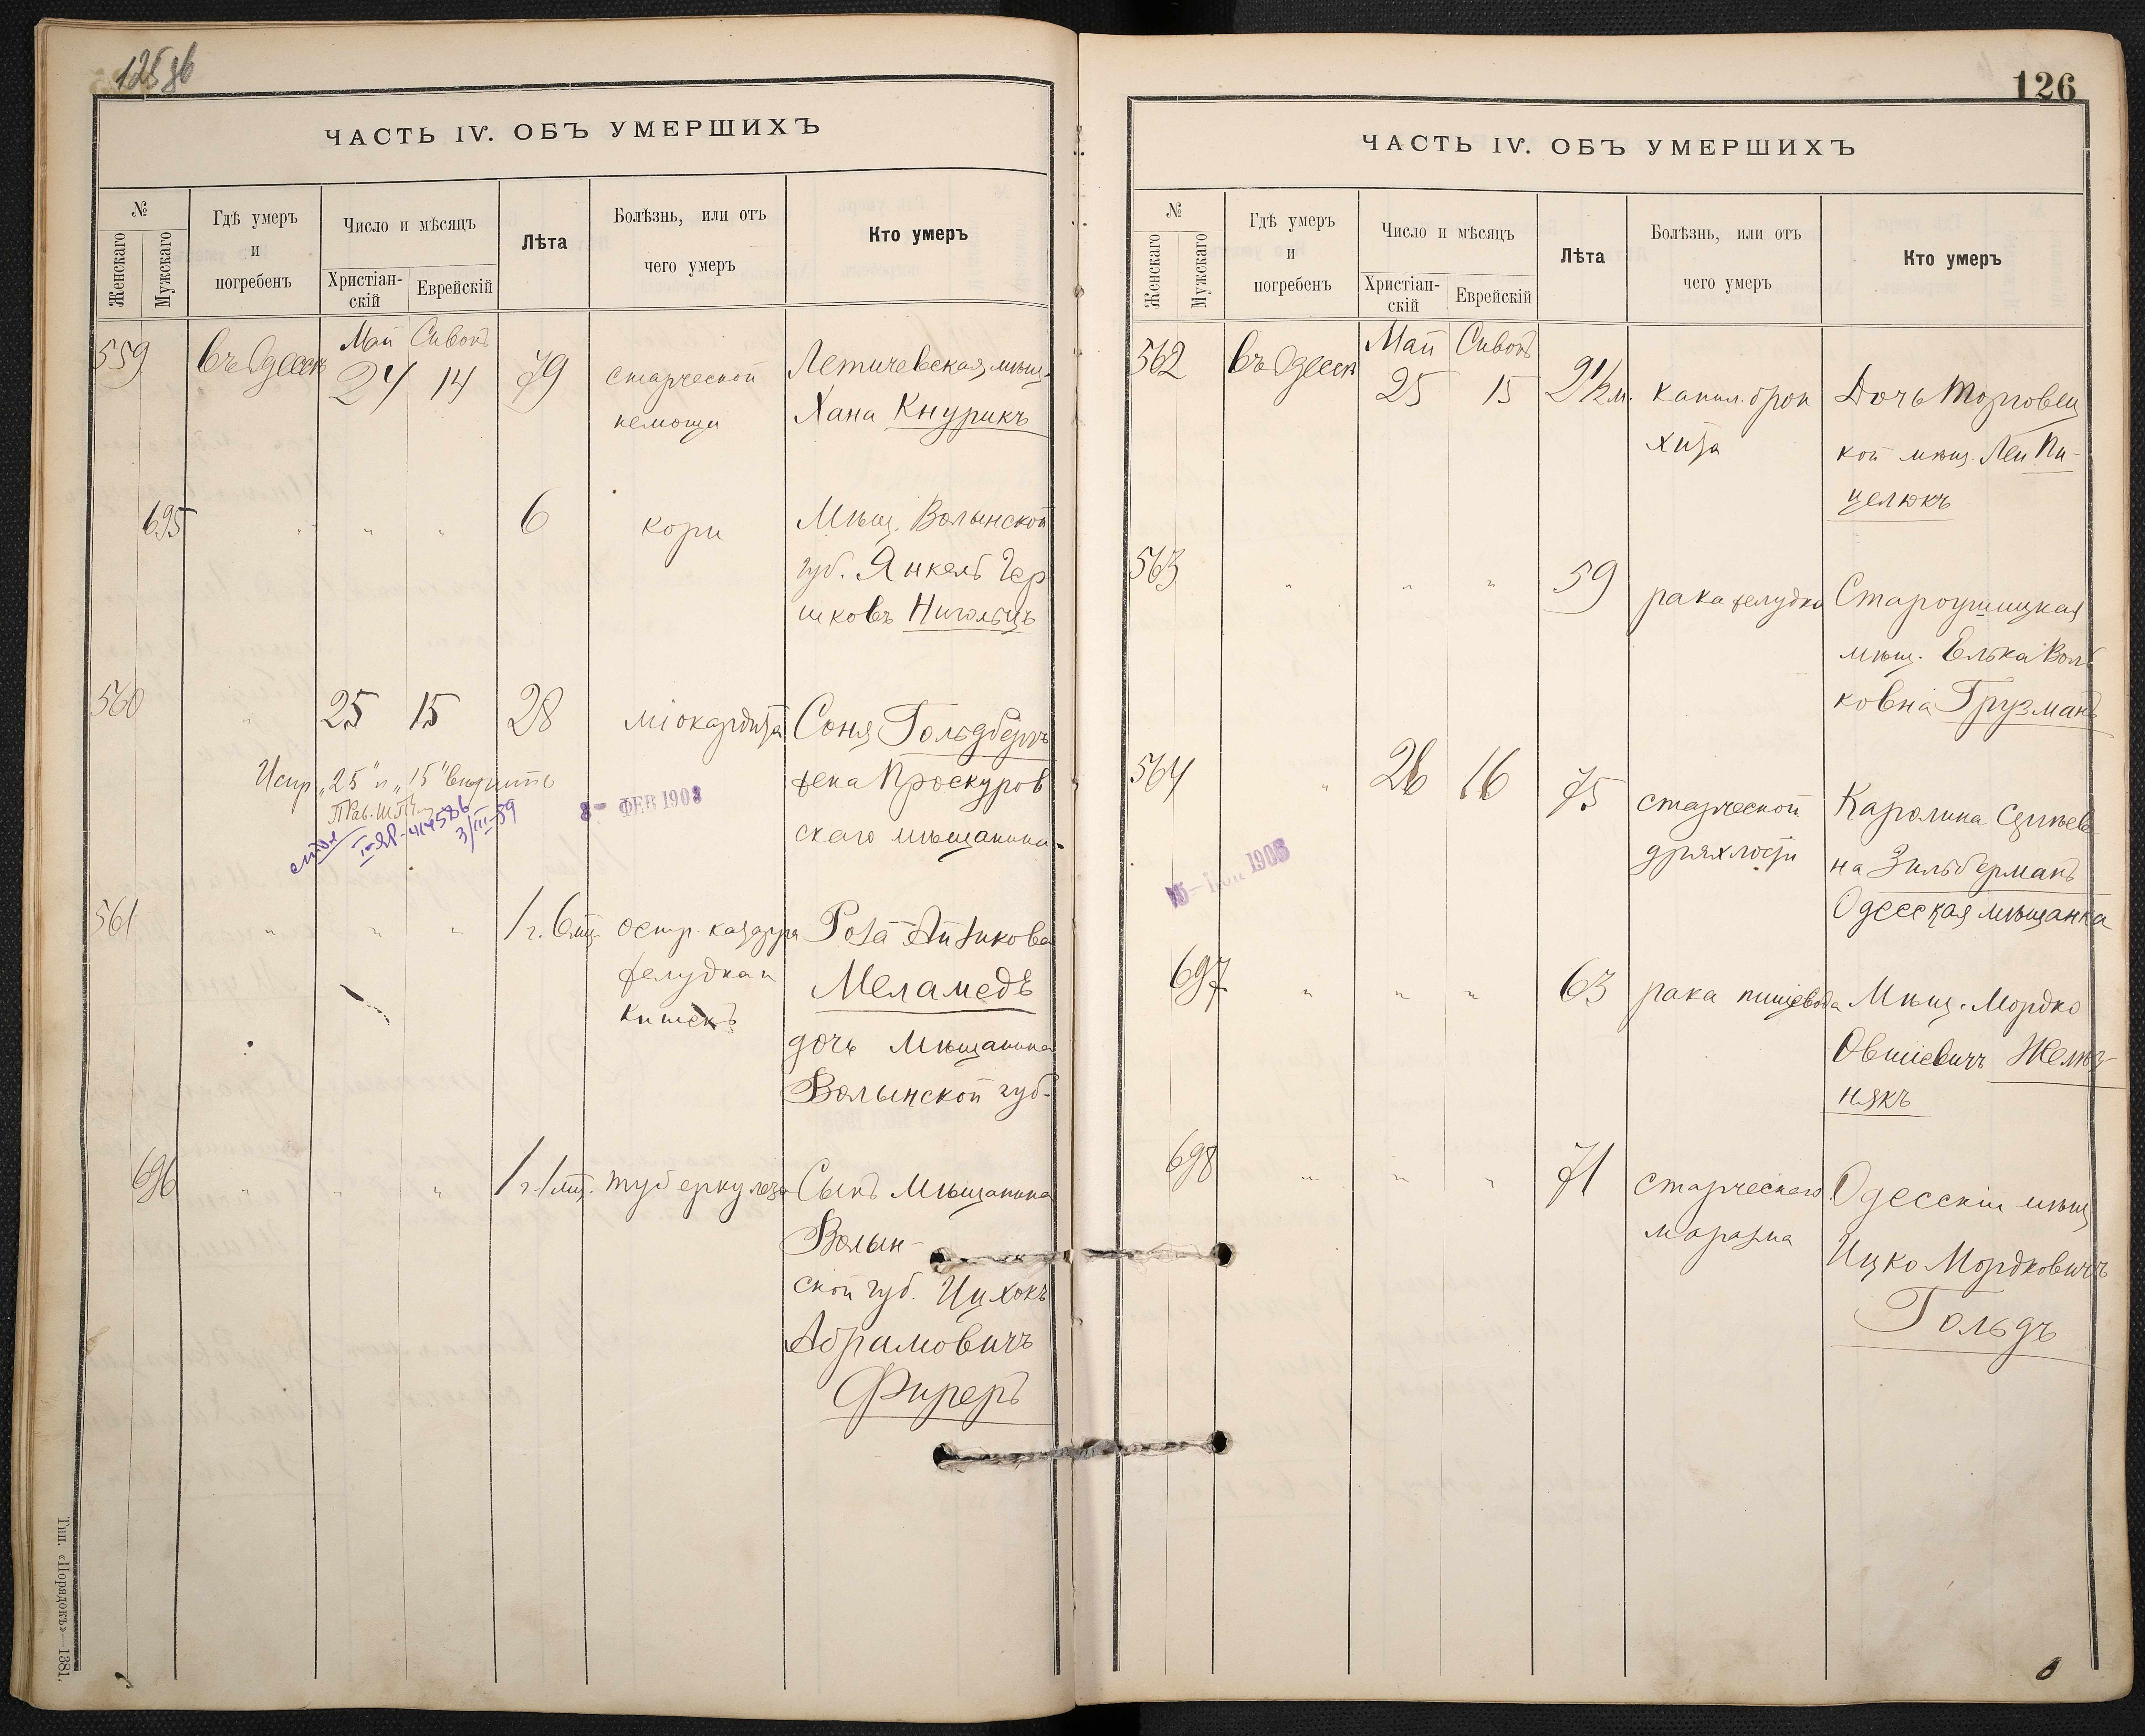 ЧАСТЬ IV. ОБЪ УМЕРШИХЪ
№
Женскаго
Мужскаго
Гдѣ умеръ
и
погребенъ
Число и мѣсяцъ
Христіан-
скій
Еврейскій
Лѣта
Болѣзнь, или отъ
чего умеръ
Кто умеръ
559
въ Одессѣ
Май Сивонъ
24 14
79
старческой
немощи
Летичевская мѣщ.
Хана Кнурикъ
695
" " "
6
кори
Мѣщ. Волынской
губ. Янкель Гер
шковъ
560
"
25 15
28
міокардита
Соня Гольдбергъ
жена Проскуров
скаго мѣщанина
Испр. „25" и „15" вѣрить
3/III-59
8- ФЕВ 1908
561
" " "
1 г. 6 мѣс.
остр. катарра
желудка и
кишекъ
Роза
Меламедъ
дочь мѣщанина
Волынской губ.
696
" " "
1 г. 1 мѣс.
туберкулеза
Сынъ мѣщанина
Волын-
ской губ. Ицхокъ
Абрамовичъ
Фиреръ
Тип. «Порядокъ»—1381.
126
ЧАСТЬ IV. ОБЪ УМЕРШИХЪ
№
Женскаго
Мужскаго
Гдѣ умеръ
и
погребенъ
Число и мѣсяцъ
Христіан-
скій
Еврейскій
Лѣта
Болѣзнь, или отъ
чего умеръ
Кто умеръ
562
въ Одессѣ
Май Сивонъ
25 15
2 1/2 м.
капил. брон
хита
Дочь Торговиц
кой мѣщ. Леи Пи-
целюкъ
563
" " "
59
рака желудка
Староушицкая
мѣщ. Елька Воль
ковна Грузманъ
564
"
26 16
75
старческой
дряхлости
Каролина
на Зильберманъ
Одесская мѣщанка
697
" " "
63
рака пищевода
Мѣщ. Мордко
Овшіевичъ Желѣз-
някъ
698
" " "
71
старческаго
маразма
Одесскій мѣщ
Ицко Мордковичъ
Гольдъ